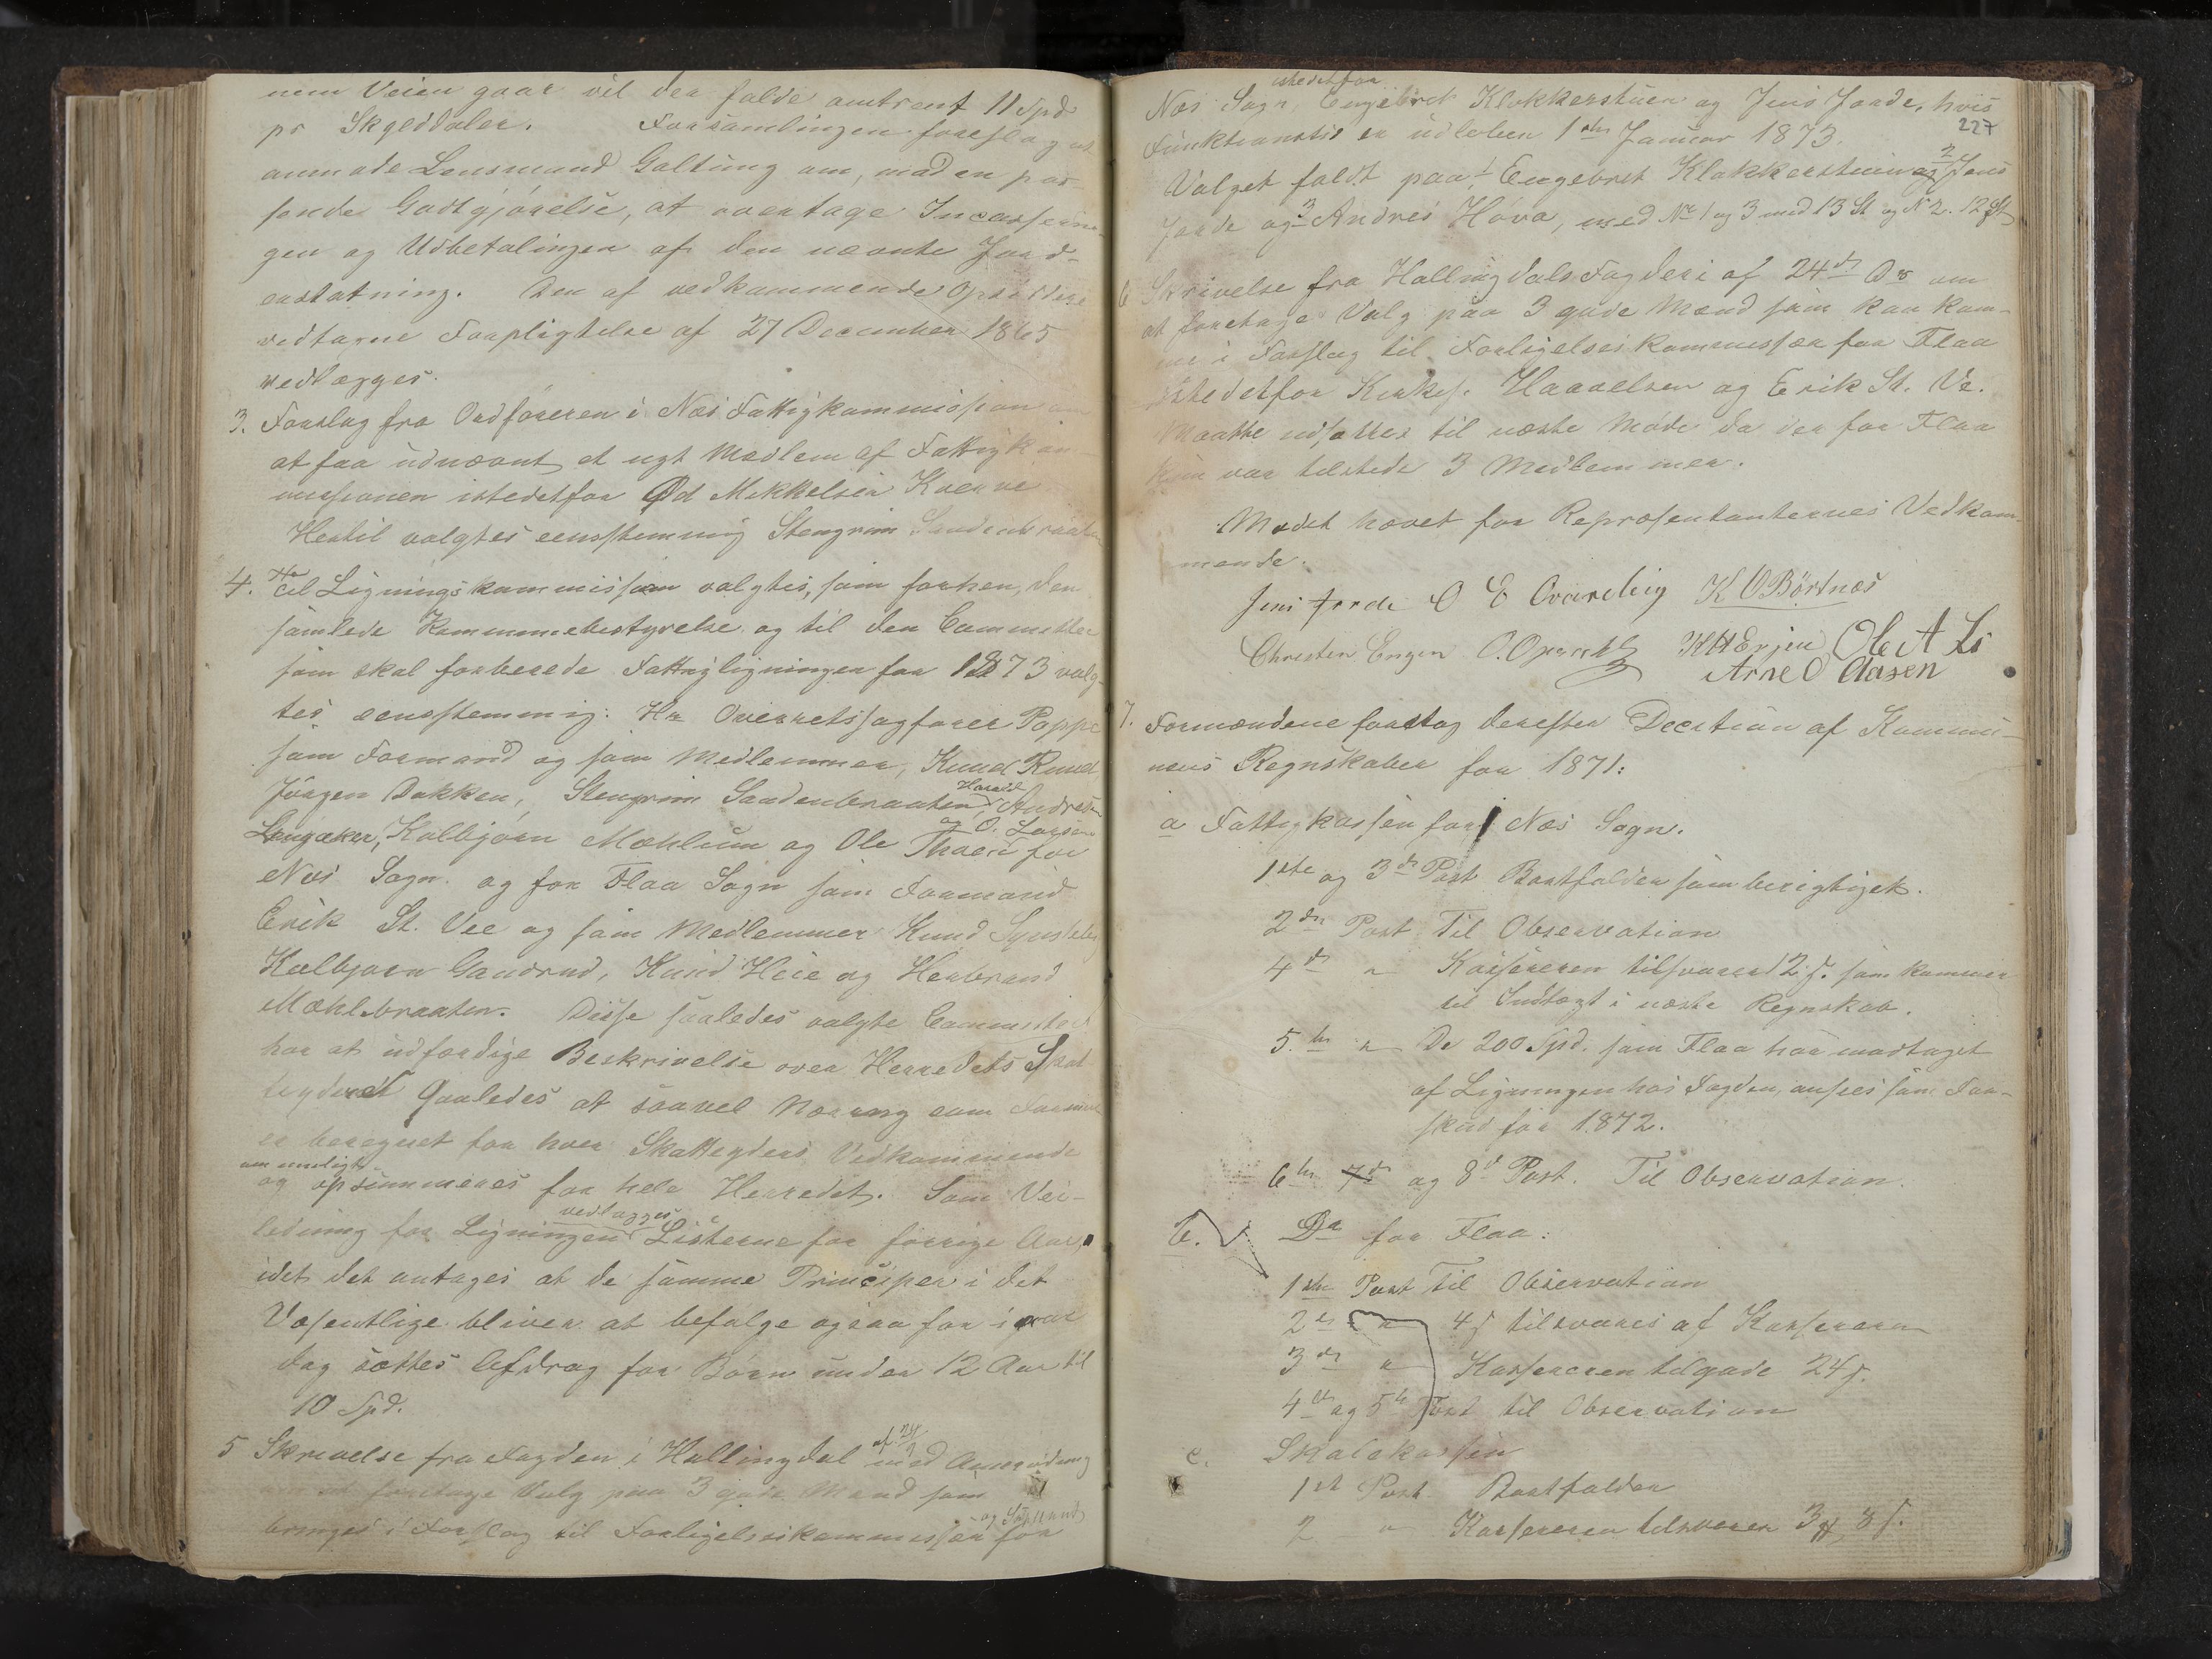 nem Veien gaar vil der falde omtrent 11 Spd
pr Skylddaler. Forsamlingen foreslog at
anmode Lensmand Galtung om, mod en pas-
sende Godtgjörelse, at overtage Incasserin-
gen og Udbetalingen af den nævnte Jord-
erstatning. Den af vedkommende Opsiddere
vedtagne Forpligtelse af 27 December 1865
vedlægges.
3. Forslag fra Ordföreren i Næs Fattigkommission om
at faa udnævnt et nyt Medlem af Fattigkom-
missionen istedetfor Ød Mikkelsen
Hertil valgtes eenstemmig Stengrim Sandenbraaten
4. Til Ligningskommission valgtes, som forhen, den
samlede Kommunebestyrelse og til den Committee
som skal forberede Fattigligningen for 1873 valg-
tes eenstemmig: Hr Overretssagförer Poppe
som Formand og som Medlemmer, Knud Ruud
Jörgen Dokken, Stengrim Sandenbraaten, Harald Andresen
Lengaker, Kolbjörn Mæhlum og Ole Thoen og O. Larsen for
Næs Sogn. og for Flaa Sogn som Formand
Erik St. Vee og som Medlemmer Knud
Kolbjørn Gandrud, Knud Heie og Herbrand
Mæhlbraaten. Disse saaledes valgte Committeer
har at udfærdige Beskrivelse over Herredets Skat-
teydere saaledes at saavel Næring som Formue
er beregnet for hver Skatteyders Vedkommende
og om muligt opsummeres for hele Herredet. Som Vei-
ledning for Ligningen vedlægges Listerne for forrige Aar,
idet det antages at de samme Principer i det
Væsentlige bliver at befølge ogsaa for i aar
dog sættes Afdrag for Börn under 12 Aar til
10 Spd.
5 Skrivelse fra Fogden i Hallingdal af 24/9 med Anmodning
om at foretage Valg paa 3 gode Mænd som
bringes i Forslag til Forligelseskommissær og Suppleant for
227
Næs Sogn, istedetfor Engebret Klokkerstuen og Jens Jorde, hvis
Funktionstid er udløben 1ste Januar 1873.
Valget faldt paa: 1 Engebret Klokkerstuen og 2 Jens
Jorde og 3 Andres Hova, med No 1 og 3 med 13 St og No 2. 12 St
6 Skrivelse fra Hallingdals Fogderi af 24de Ds om
at foretage Valg paa 3 gode Mænd som kan kom-
me i Forslag til Forligelseskommissær for Flaa
istedetfor Kirkes. Haavelsen og Erik St. Ve.
Maatte udsættes til næste Möde da der for Flaa
kun var tilstede 3 Medlemmer.
Mødet hævet for Repræsentanternes Vedkom
mende.
Jens Jorde O E Qvarclig K O Børtnæs
Christen Engen O. Opsat K H Erjen Ole A Li
Arne O Aasen
7. Formændene foretog derefter Decition af Kommu-
nens Regnskaber for 1871:
a Fattigkassen for Næs Sogn.
1ste og 3de Post Bortfalder som berigtiget.
2den Post Til Observation
4de " Kassereren tilsvarer 2 s. som kommer
til Indtægt i næste Regnskab.
5te " De 200 Spd. som Flaa har modtaget
af Ligningen hos Fogden, ansees som For-
skud for 1872.
6te 7de og 8de Post. Til Observation.
b. Do for Flaa:
1ste Post Til Observation
2de " 4 s tilsvares af Kassereren
3de " Kassereren tilgode 24 s.
4de og 5te Post til Observation
c. Skolekassen
1ste Post Bortfalder
2 " Kassereren tilsvarer 3 8 s.